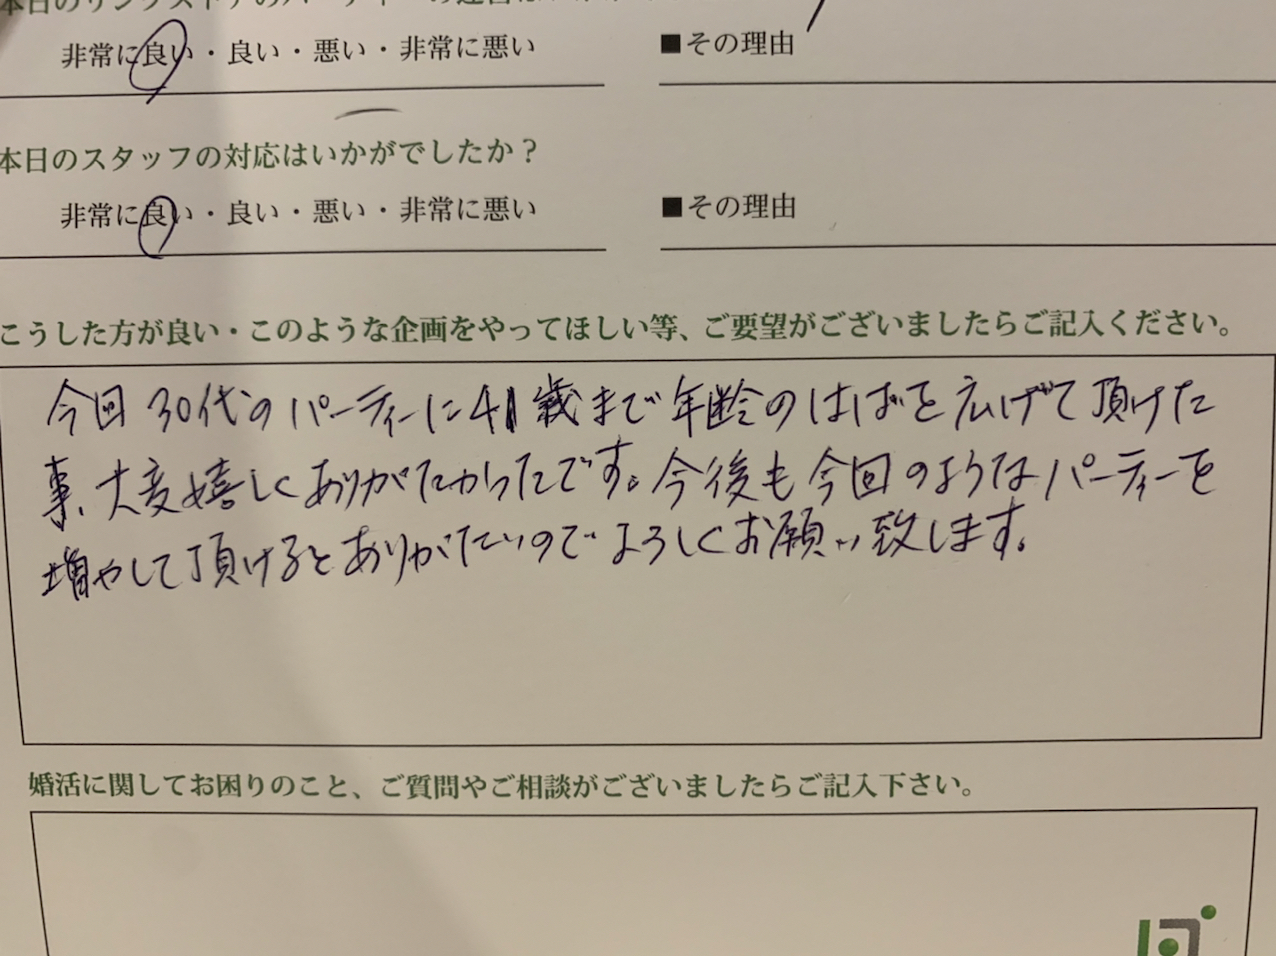 非常に良い・良い・悪い・非常に悪い
■その理由
本日のスタッフの対応はいかがでしたか？
非常に良い・良い・悪い・非常に悪い
■その理由
こうした方が良い・このような企画をやってほしい等、ご要望がございましたらご記入ください。
今回30代のパーティーに41歳まで年齢のはばを広げて頂けた
事、大変嬉しくありがたかったです。今後も今回のようなパーティーを
増やして頂けるとありがたいのでよろしくお願い致します。
婚活に関してお困りのこと、ご質問やご相談がございましたらご記入下さい。